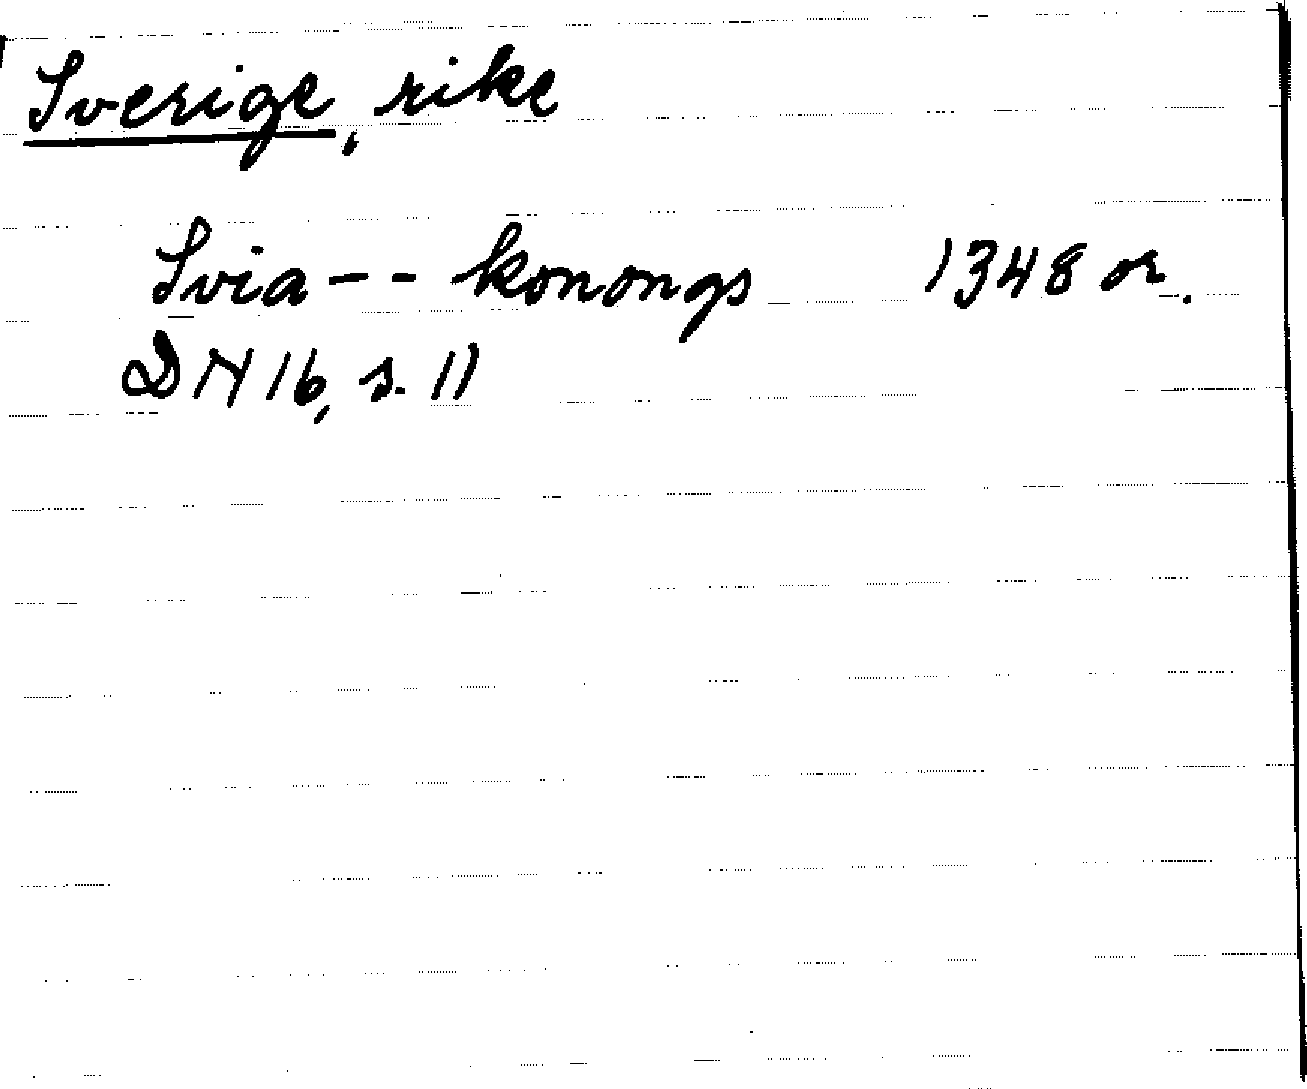 Sverige, rike
Svia -- konongs 1348 or.
DN 16, s. 11